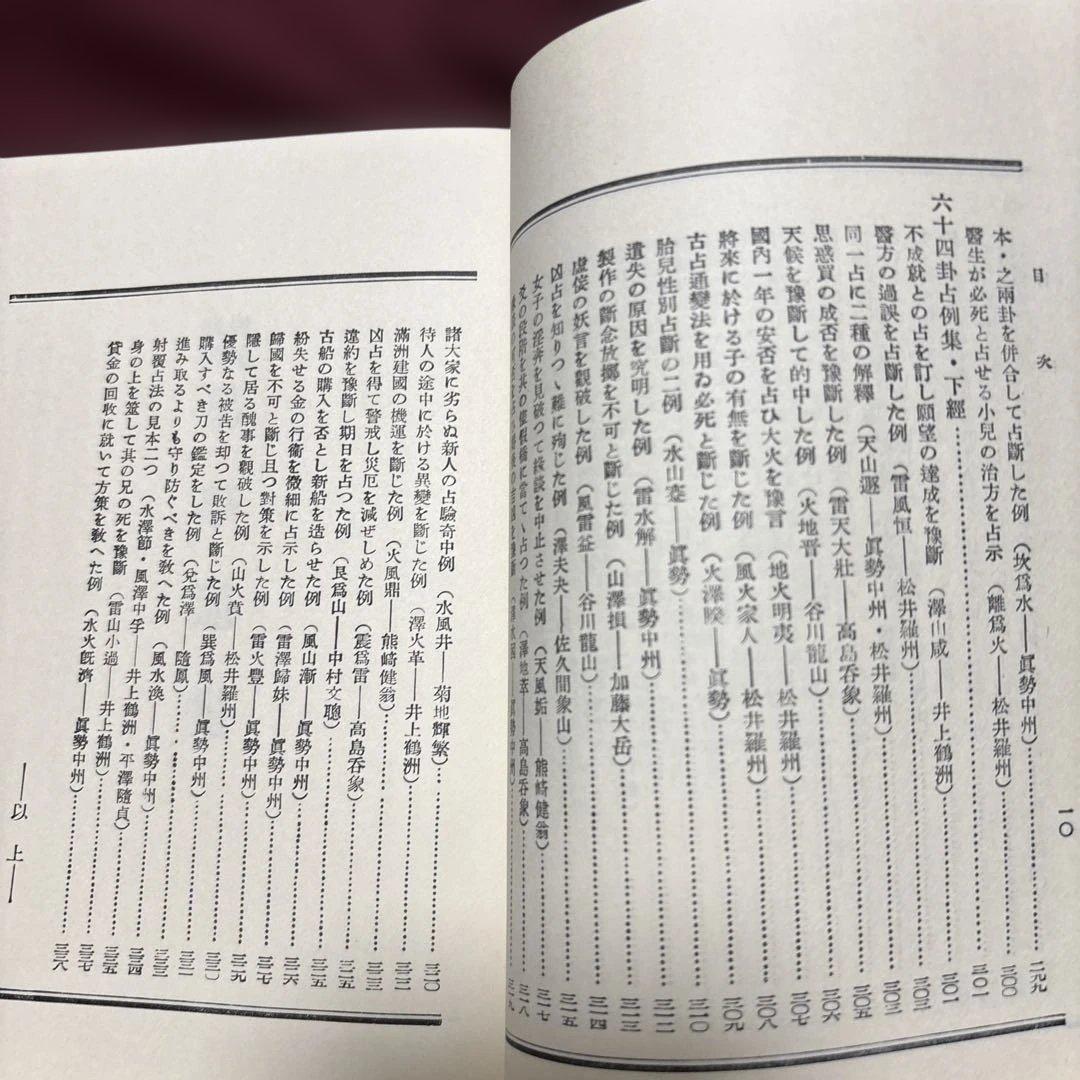 目次
一〇
本・之兩卦を併合して占斷した例（坎爲水――眞勢中州）…二九九
醫生が必死と占せる小兒の治方を占示（離爲火――松井羅州）…三〇〇
六十四卦占例集・下經…三〇一
不成就との占を訂し願望の達成を豫斷（澤山咸――井上鶴洲）…三〇一
醫方の過誤を占斷した例（雷風恒――松井羅州）…三〇三
同一占に二種の解釋（天山遯――眞勢中州・松井羅州）…三〇三
思惑買の成否を豫斷した例（雷天大壯――高島呑象）…三〇五
天候を豫斷して的中した例（火地晉――谷川龍山）…三〇六
國内一年の安否を占ひ大火を豫言（地火明夷――松井羅州）…三〇七
將來に於ける子の有無を斷じた例（風火家人――松井羅州）…三〇八
古占通變法を用ゐ必死と斷じた例（火澤睽――眞勢）…三〇九
胎兒性別占斷の二例（水山蹇――眞勢）…三一〇
遺失の原因を究明した例（雷水解――眞勢中州）…三一二
製作の斷念放擲を不可と斷じた例（山澤損――加藤大岳）…三一三
虚俊の妖言を觀破した例（風雷益――谷川龍山）…三一四
凶占を知りつゝ難に殉じた例（澤天夬――佐久間象山）…三一五
女子の淫奔を見破つて緣談を中止させた例（天風姤――熊﨑健翁）…三一七
爻の段階を共の（澤地萃――高島呑象）…三一八
三一九
諸大家に劣らぬ新人の占驗奇中例（水風井――菊地輝繁）…三二〇
待人の途中に於ける異變を斷じた例（澤火革――井上鶴洲）…三二二
滿洲建國の機運を斷じた例（火風鼎――熊﨑健翁）…三二三
凶占を得て警戒し災厄を減ぜしめた例（震爲雷――高島呑象）…三二五
違約を豫斷し期日を占つた例（艮爲山――中村文聰）…三二五
古船の購入を否とし新船を造らせた例（風山漸――眞勢中州）…三二六
紛失せる金の行衞を微細に占示した例（雷澤歸妹――眞勢中州）…三二七
歸國を不可と斷じ且つ對策を示した例（雷火豐――眞勢中州）…三二九
隱して居る醜事を觀破した例（山火賁――松井羅州）…三三〇
優勢なる被告を却つて敗訴と斷じた例（巽爲風――眞勢中州）…三三一
購入すべき刀の鑑定をした例（兌爲澤――隨鳳）…三三二
進み取るよりも守り防ぐべきを敎へた例（風水渙――眞勢中州）…三三四
射覆占法の見本二つ（水澤節・風澤中孚――井上鶴洲・平澤隨貞）…三三五
身の上を筮して其の兄の死を豫斷（雷山小過――井上鶴洲）…三三七
貸金の回收に就いて方策を敎へた例（水火旣濟――眞勢中州）…三三八
――以上――